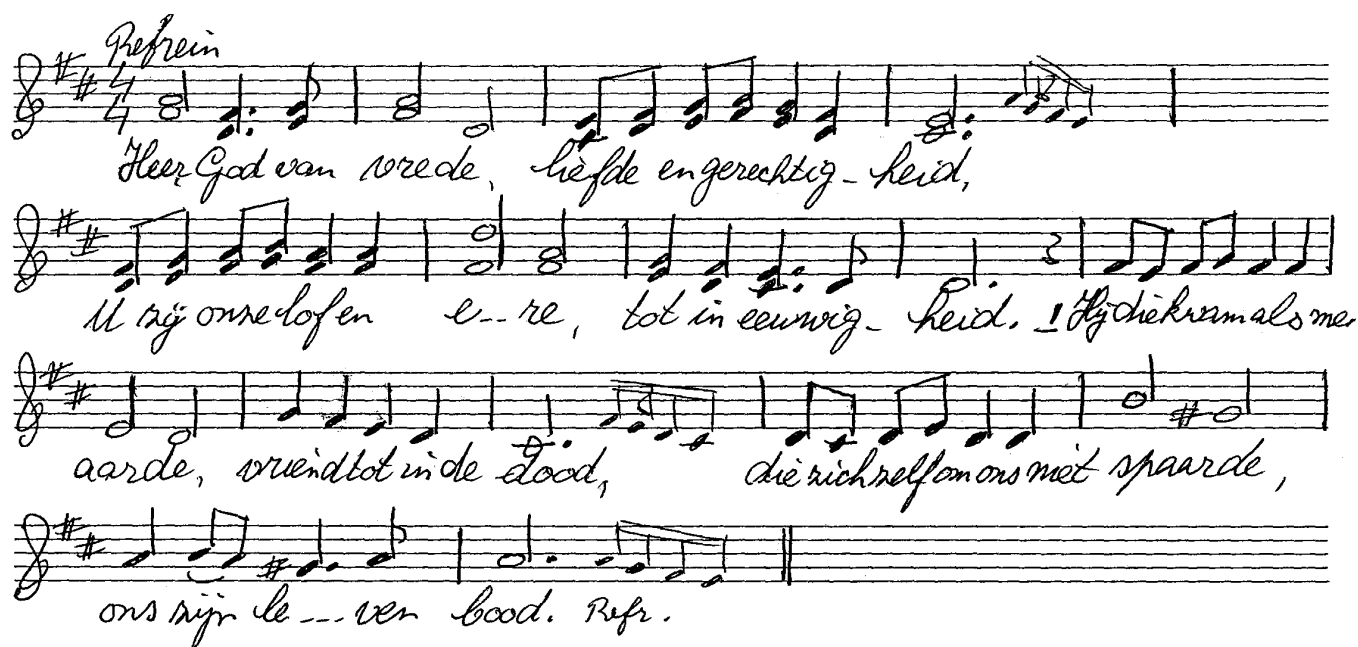 Refrein
4
4
Heer God van vrede, liefde en gerechtig-heid,
U zij onze lof en e--re, tot in eeuwig-heid. 1 Hij die kwam als me
aarde, vriend tot in de dood, die zich zelf om ons niet spaarde,
ons zijn le---ven bood. Refr.